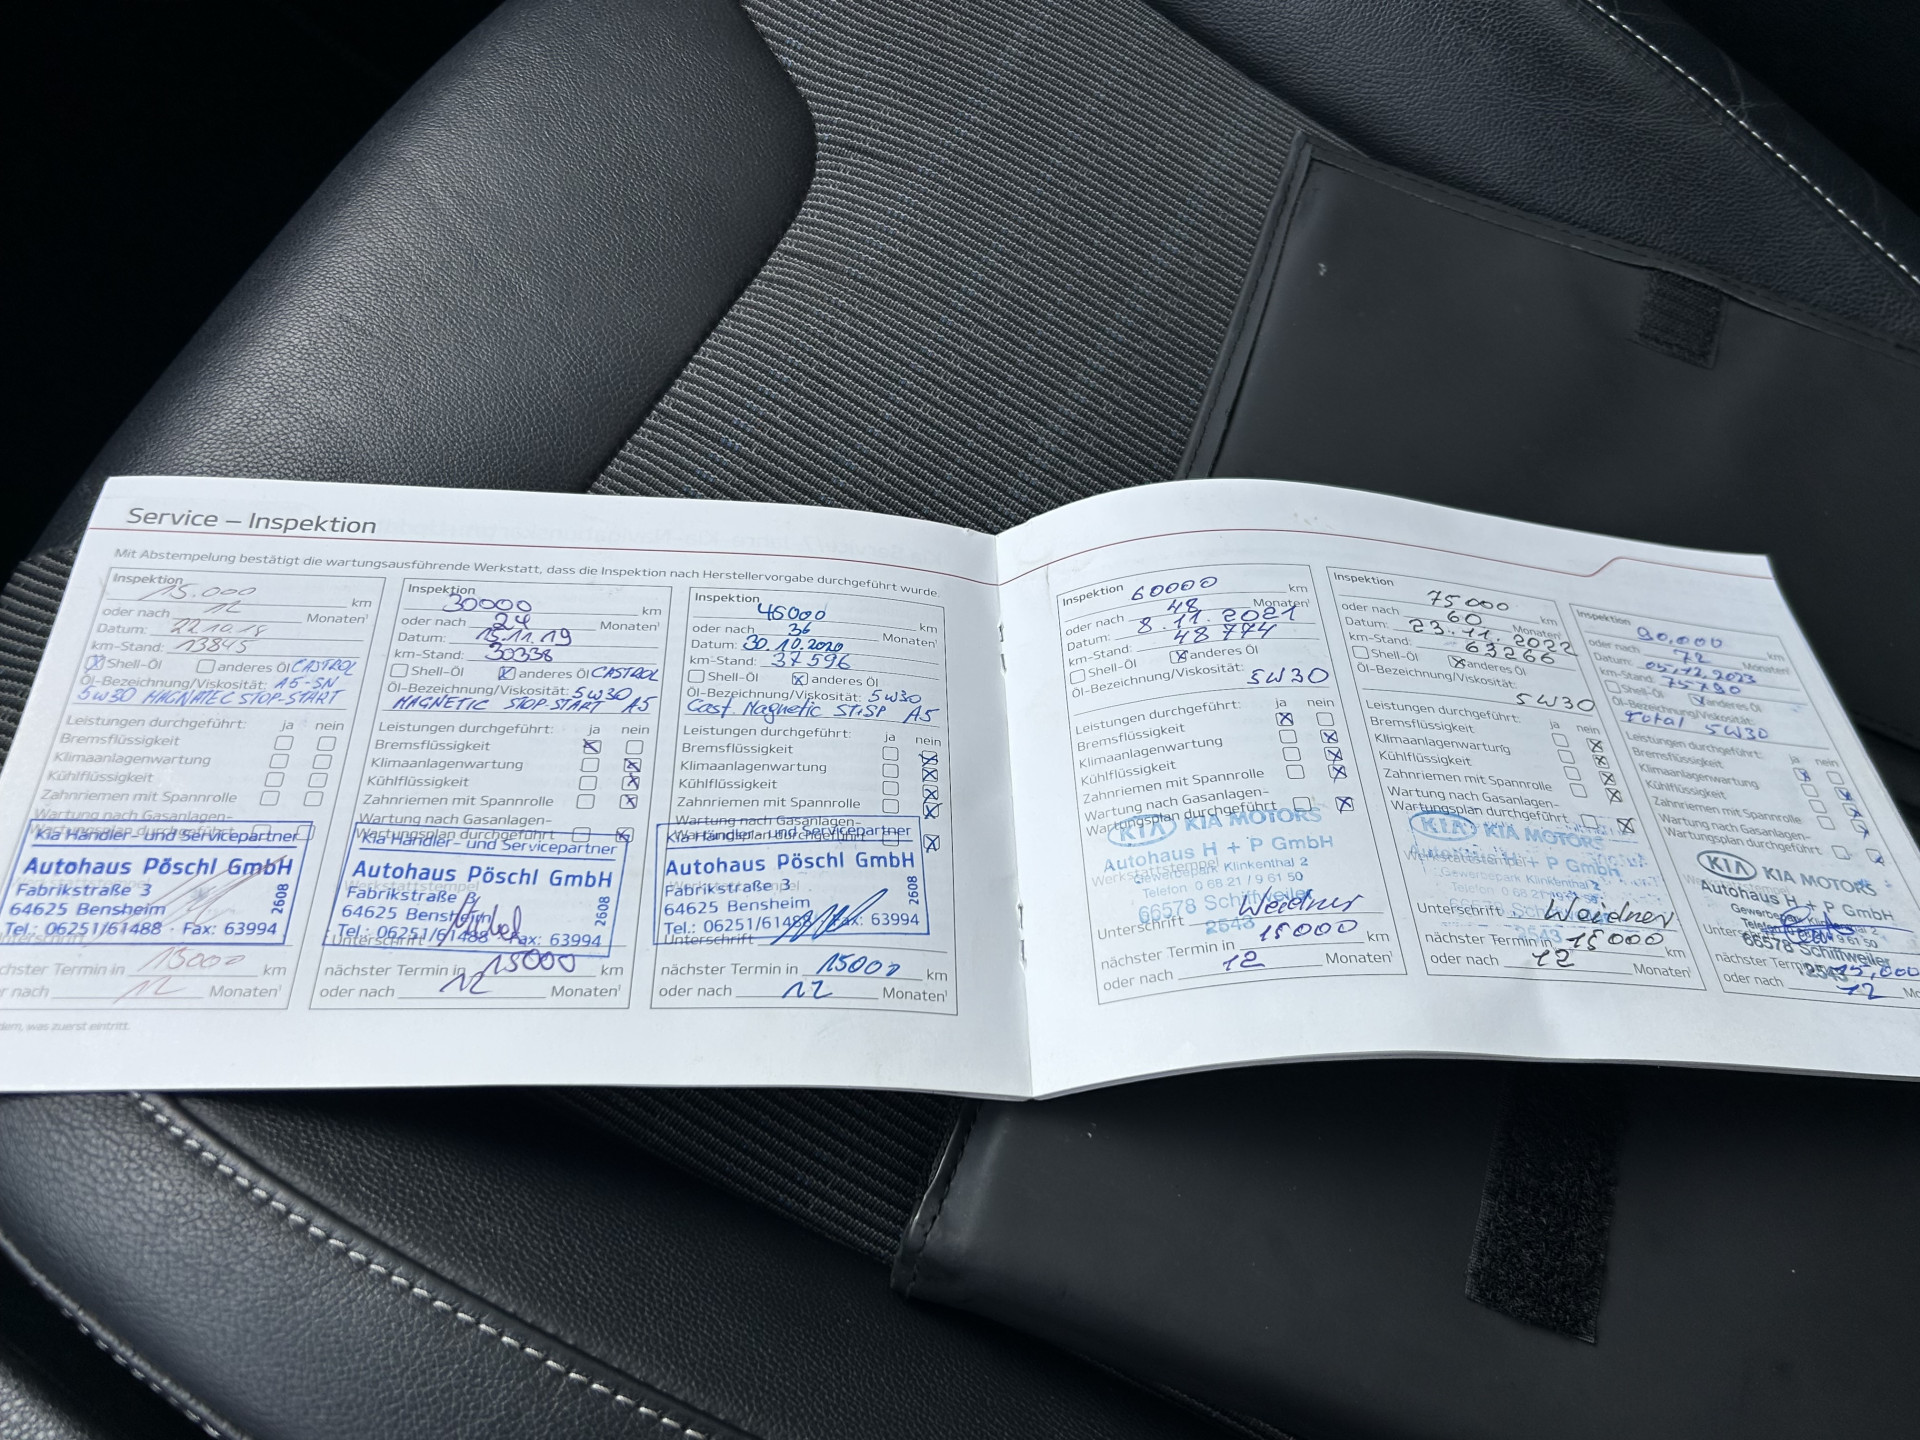 Service – Inspektion
Mit Abstempelung bestätigt die wartungsausführende Werkstatt, dass die Inspektion nach Herstellervorgabe durchgeführt wurde.
Inspektion
15.000 km
oder nach 12 Monaten¹
Datum: 22.10.18
km-Stand: 13845
Shell-Öl anderes Öl CASTROL
Öl-Bezeichnung/Viskosität: A5-SN
5W30 MAGNATEC STOP-START
Leistungen durchgeführt: ja nein
Bremsflüssigkeit
Klimaanlagenwartung
Kühlflüssigkeit
Zahnriemen mit Spannrolle
Wartung nach Gasanlagen-
Wartungsplan durchgeführt
Kia Händler- und Servicepartner
Autohaus Pöschl GmbH
Fabrikstraße 3
64625 Bensheim
Tel.: 06251/61488 · Fax: 63994
2608
Unterschrift
nächster Termin in 15000 km
oder nach 12 Monaten¹
Inspektion
30000 km
oder nach 24 Monaten¹
Datum: 15.11.19
km-Stand: 30338
Shell-Öl anderes Öl CASTROL
Öl-Bezeichnung/Viskosität: 5W30
MAGNETIC STOP-START A5
Leistungen durchgeführt: ja nein
Bremsflüssigkeit
Klimaanlagenwartung
Kühlflüssigkeit
Zahnriemen mit Spannrolle
Wartung nach Gasanlagen-
Wartungsplan durchgeführt
Kia Händler- und Servicepartner
Autohaus Pöschl GmbH
Werkstattstempel
Fabrikstraße 3
64625 Bensheim
Tel.: 06251/61488 Fax: 63994
2608
Unterschrift
nächster Termin in 15000 km
oder nach 12 Monaten¹
Inspektion
45000 km
oder nach 36 Monaten¹
Datum: 30.10.2020
km-Stand: 37596
Shell-Öl anderes Öl
Öl-Bezeichnung/Viskosität: 5W30
Cast. Magnetic ST.SP A5
Leistungen durchgeführt: ja nein
Bremsflüssigkeit
Klimaanlagenwartung
Kühlflüssigkeit
Zahnriemen mit Spannrolle
Wartung nach Gasanlagen-
Wartungsplan durchgeführt
Kia Händler- und Servicepartner
Autohaus Pöschl GmbH
Fabrikstraße 3
64625 Bensheim
Tel.: 06251/61488 Fax: 63994
2608
Unterschrift
nächster Termin in 15000 km
oder nach 12 Monaten¹
Inspektion 60000 km
oder nach 48 Monaten¹
Datum: 8.11.2021
km-Stand: 48774
Shell-Öl anderes Öl
Öl-Bezeichnung/Viskosität:
5W30
Leistungen durchgeführt: ja nein
Bremsflüssigkeit
Klimaanlagenwartung
Kühlflüssigkeit
Zahnriemen mit Spannrolle
Wartung nach Gasanlagen-
Wartungsplan durchgeführt
KIA KIA MOTORS
Autohaus H + P GmbH
Werkstattstempel
Gewerbepark Klinkenthal 2
Telefon 0 68 21 / 9 61 50
66578 Schiffweiler
2543
Unterschrift Weidner
nächster Termin in 15000 km
oder nach 12 Monaten¹
Inspektion
75000 km
oder nach 60 Monaten¹
Datum: 23.11.2022
km-Stand: 63266
Shell-Öl anderes Öl
Öl-Bezeichnung/Viskosität:
5W30
Leistungen durchgeführt: ja nein
Bremsflüssigkeit
Klimaanlagenwartung
Kühlflüssigkeit
Zahnriemen mit Spannrolle
Wartung nach Gasanlagen-
Wartungsplan durchgeführt
KIA KIA MOTORS
Autohaus H + P GmbH
Werkstattstempel
Gewerbepark Klinkenthal 2
2543
Unterschrift Weidner
nächster Termin in 15000 km
oder nach 12 Monaten¹
Inspektion
90.000 km
oder nach 72 Monaten¹
Datum: 05.12.2023
km-Stand: 75790
Shell-Öl
anderes Öl
Öl-Bezeichnung/Viskosität:
Total 5W30
Leistungen durchgeführt: ja nein
Bremsflüssigkeit
Klimaanlagenwartung
Kühlflüssigkeit
Zahnriemen mit Spannrolle
Wartung nach Gasanlagen-
Wartungsplan durchgeführt
KIA KIA MOTORS
Autohaus H + P GmbH
66578 Schiffweiler
2543
nächster Termin 15,000
oder nach 12